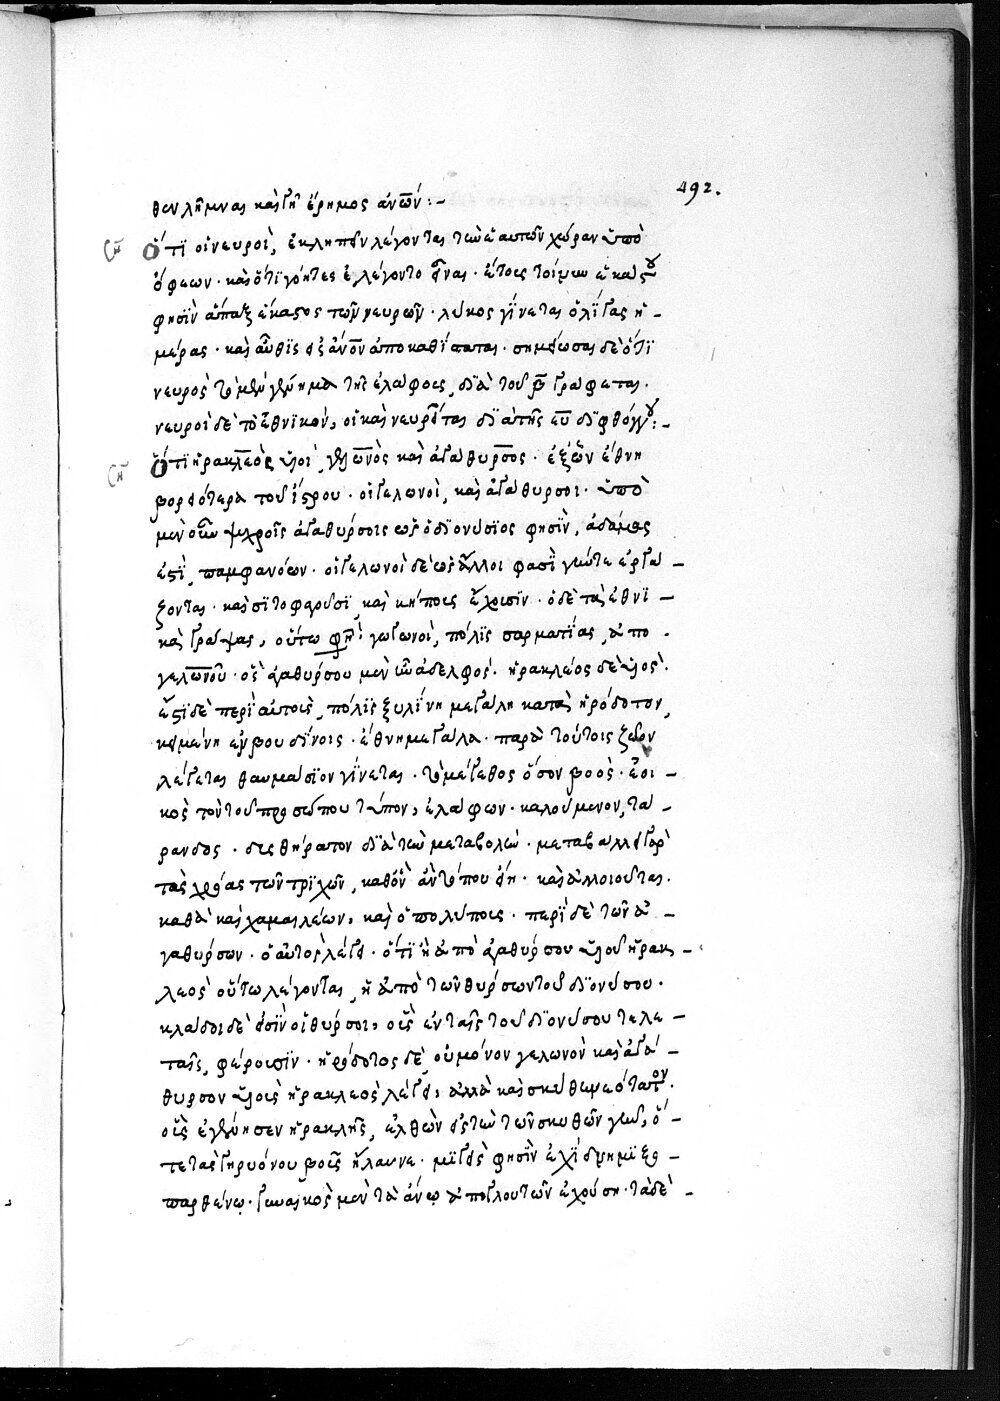 492.
θεν λίμναι καὶ γῆ ἔρημος ἀν͞ων :-
Ὅτι οἱ νευροὶ, ἐκλιπεῖν λέγονται τὴν ἑαυτῶν χώραν ὑπὸ
ὄφεων · καὶ ὅτι γόητες ἐλέγοντο εἶναι · ἔτους τοίνυν ἑκάστου
φησὶν ἅπαξ ἕκαστος τῶν νευρῶν · λύκος γίνεται ὀλίγας ἡ -
μέρας · καὶ αὖθις εἰς ἀν͞ον ἀποκαθίσταται · σημείωσαι δὲ ὅτι
νευρος τὸ γέννημα τῆς ἐλάφου, διὰ τοῦ β͞ γράφεται.
νευροὶ δὲ τὸ ἐθνικὸν, οἱ καὶ νευρῖται διὰ τῆς ε͞υ διφθόγγου :-
Ὅτι ἡρακλέος υἱοὶ, γελωνὸς καὶ ἀγάθυρσος · ἐξ ὧν ἔθνη
βορειότερα τοῦ ἴστρου · οἱ γελωνοὶ, καὶ ἀγάθυρσοι · ὑπὸ
μὲν οὖν ψυχροῖς ἀγαθύρσοις ὡς ὁ διονύσιος φησὶν, ἀδάμας
ἐστὶ, παμφανόων · οἱ γελωνοὶ δὲ ὡς ἄλλοι φασὶ γῆν τε ἐργά -
ζονται · καὶ σιτοφαγοῦσι, καὶ κήπους ἔχουσιν · ὁ δὲ τὰ ἐθνι -
κὰ γράψας, οὕτω φη͞ · γελωνοὶ, πόλις σαρματίας, ἀπο .
γελωνοῦ · ὃς ἀγαθύρσου μὲν ἦν ἀδελφός · ἡρακλέος δὲ υἱός.
ἔστι δὲ περὶ αὐτοὺς, πόλις ξυλίνη μεγάλη κατὰ ἡρόδοτον,
κειμένη ἐν βουδίνοις · ἔθνη μεγάλα · παρὰ τούτοις ζῶον
λέγεται θαυμάσιον γίνεται · τὸ μέγεθος ὅσον βοὸς · ἐοι -
κὸς τὸν τοῦ προσώπου τύπον, ἐλάφων · καλούμενον, τά -
ρανδος · δυσθήρατον διὰ τὴν μεταβολὴν · μεταβάλλει γὰρ
τὰς χρόας τῶν τριχῶν, καθ' ὃν ἂν τόπου ᾖ · καὶ ἀλλοιοῦται.
καθὰ καὶ χαμαιλέων, καὶ ὁ πολύπους · περὶ δὲ τῶν ἀ -
γαθύρσων · ὁ αὐτὸς λέγει · ὅτι ἢ ἀπὸ ἀγαθύρσου υἱοῦ ἡρακ -
λεος οὕτω λέγονται, ἢ ἀπὸ τῶν θύρσων τοῦ διονύσου .
κλάδοι δέ εἰσιν οἱ θύρσοι, οὓς ἐν ταῖς τοῦ διονύσου τελε -
ταῖς, φέρουσιν · ἡρόδοτος δὲ, οὐ μόνον γελωνὸν καὶ ἀγά -
θυρσον υἱοὺς ἡρακλέος λέγει, ἀλλὰ καὶ σκύθην νεώτατον.
οὓς ἐγέννησεν ἡρακλῆς, ἐλθὼν εἰς τὴν τῶν σκυθῶν γῆν, ὅ -
τε τὰς γηρυόνου βοῦς ἤλαυνε · μιγεὶς φησὶν ἐχίδνῃ μιξο -
παρθένῳ · γυναικὸς μὲν τὰ ἄνω ἀπὸ γλουτῶν ἐχούσῃ · τὰ δὲ -